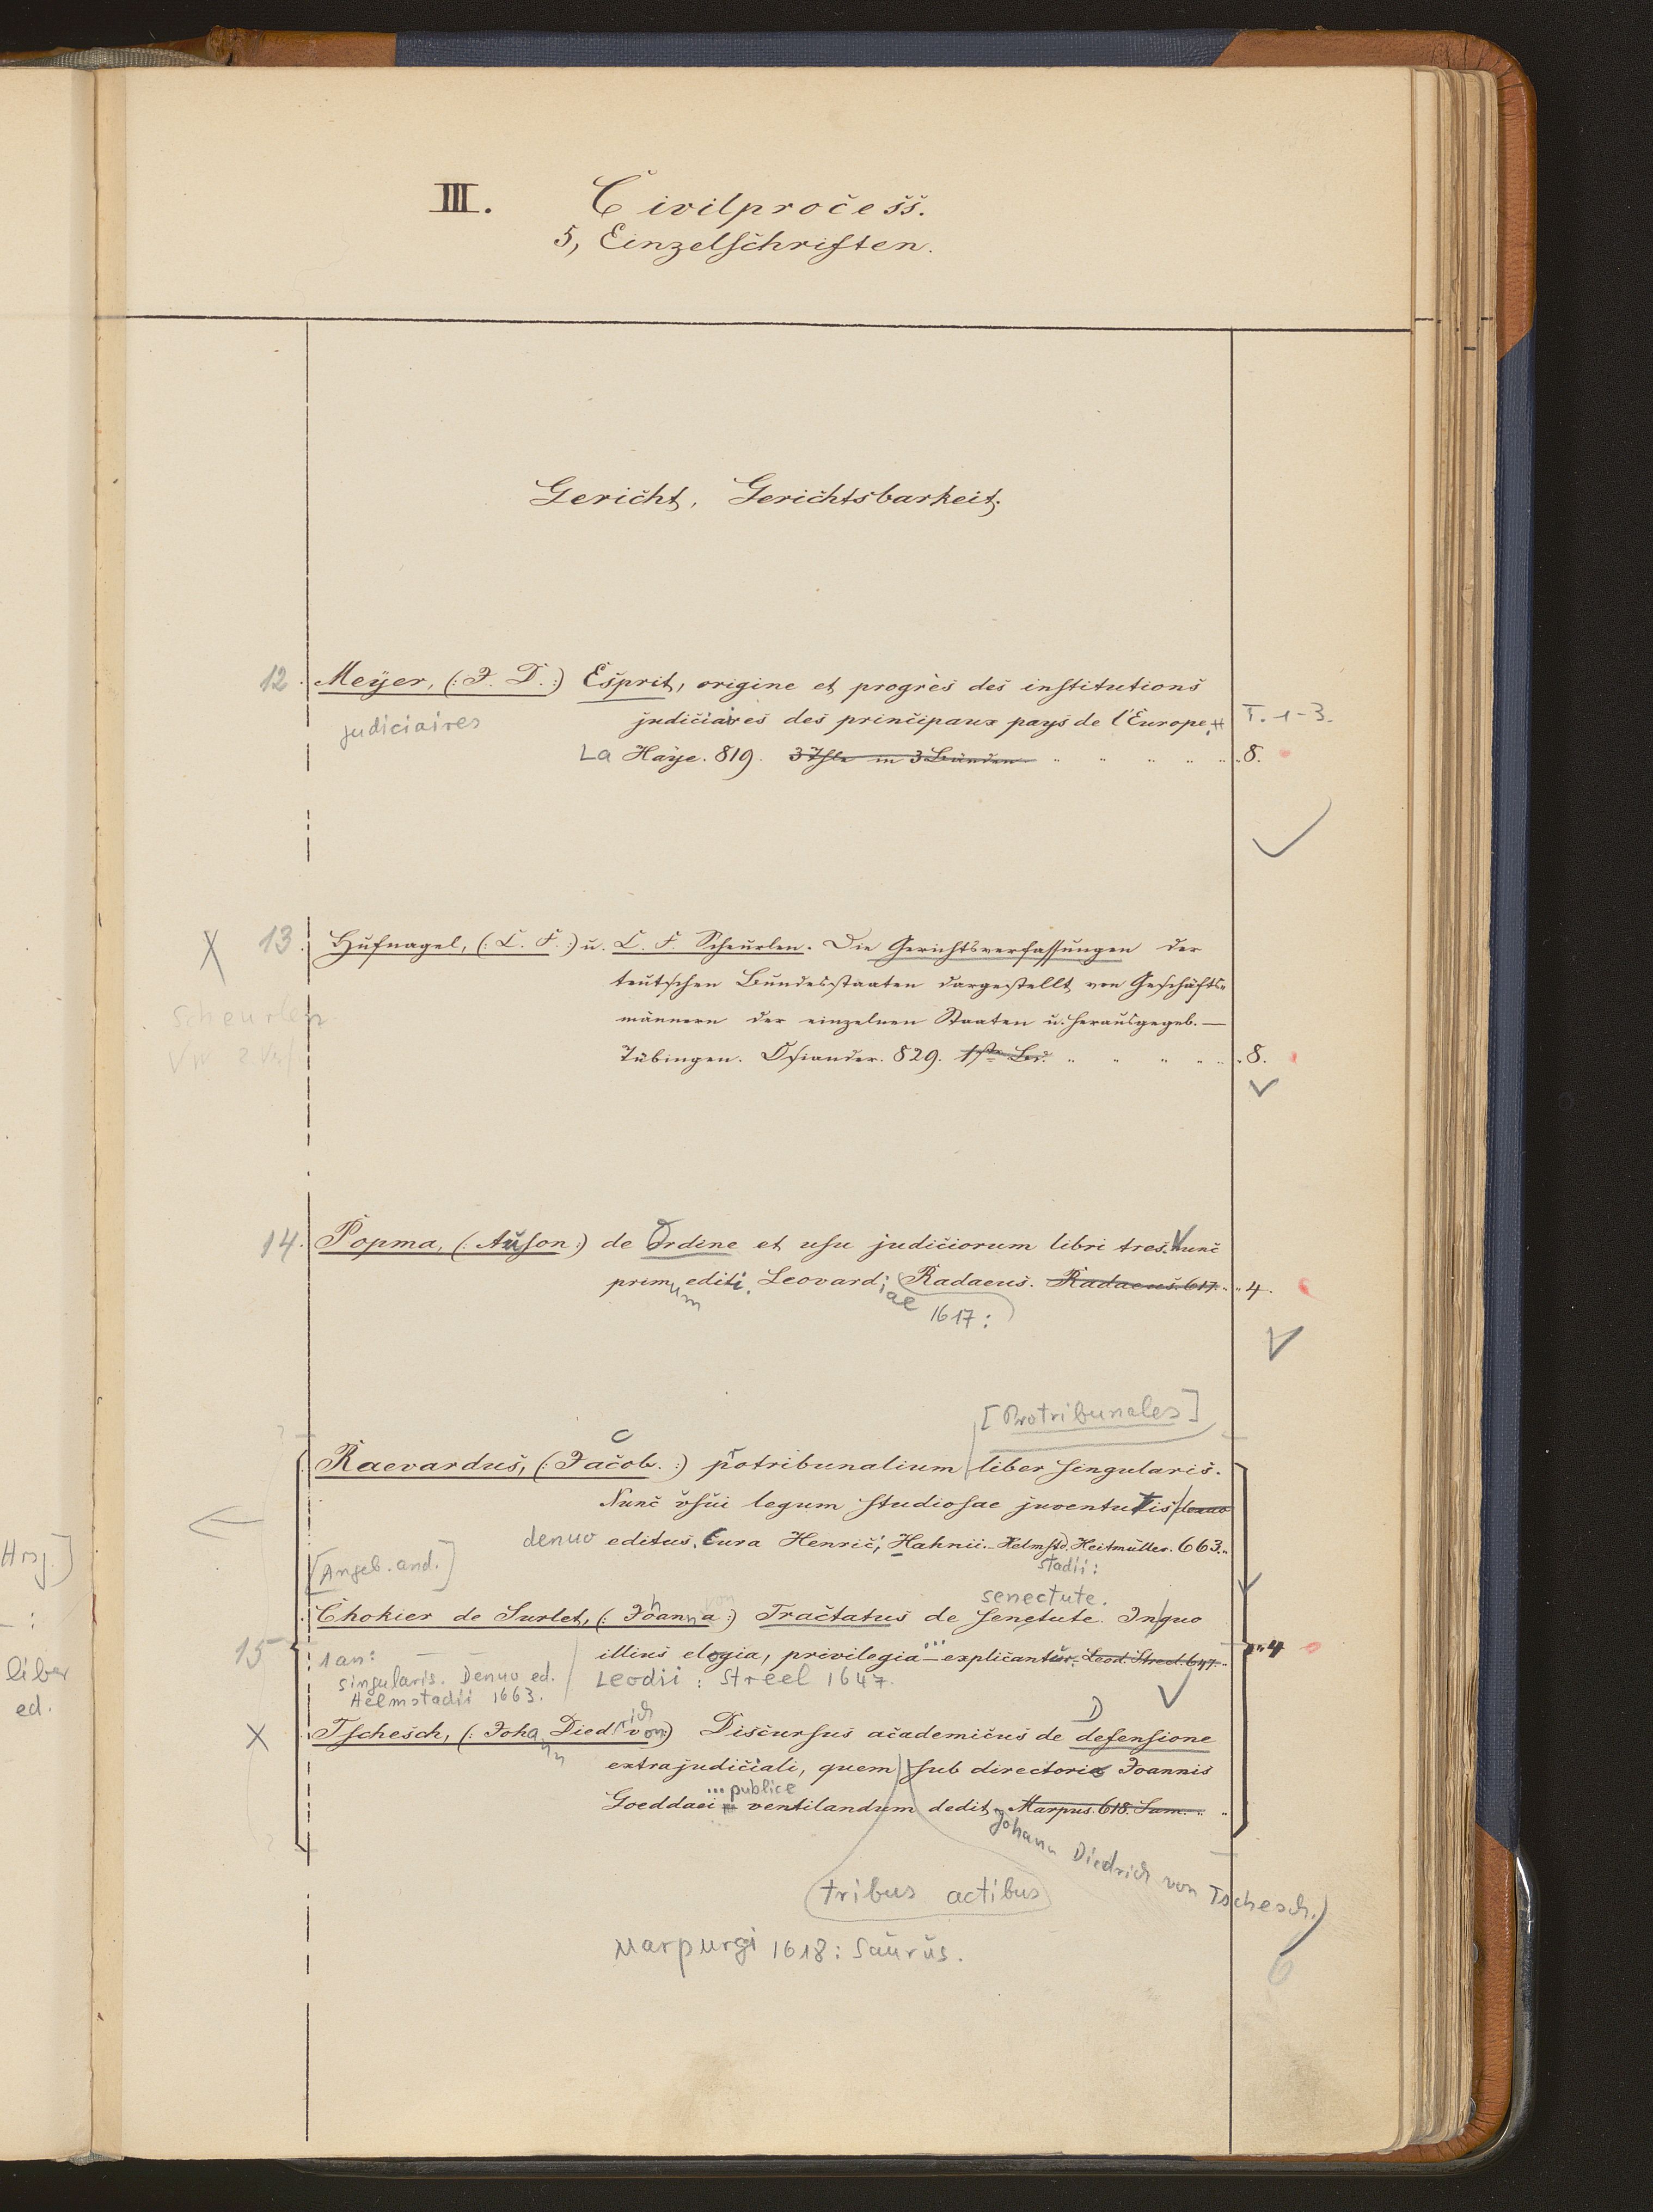 III. Civilprocess.
5, Einzelschriften.
Gericht, Gerichtsbarkeit.
12. Meyer, (: J. D. :) Esprit, origine et progrès des institutions
judiciaires des principaux pays de l'Europe. T. 1-3.
judiciaires
La Haye. 819. 3 Thle in 3 Bänden " " " " " 8.
X 13. Hufnagel, (: C. F. :) u. C. F. Scheurlen. Die Gerichtsverfassungen der
teutschen Bundesstaaten dargestellt von Geschäfts-
Scheurlen
männern der einzelnen Staaten u. herausgegeb. —
Tübingen. Osiander. 829. 1ster Bd. " " " " " 8.
14. Popma, (: Auson :) de Ordine et usu judiciorum libri tres. Nunc
primum editi. Leovardiae Radaeus. Radaeus. 617. " " 4.
1617:
[Protribunales]
Raevardus, (: Jacob. :) protribunalium liber singularis.
Nunc usui legum studiosae juventutis denuo
denuo editus. Cura Henrici Hahnii. Helmstd. Heitmüller. 663. "
stadii:
[Angeb. and.]
senectute.
Chokier de Surlet, (: Johanna :) von Tractatus de senectute. In quo
15 illius elogia, privilegia ... explicantur. Leod. Streel. 647. " " 4
1 an: — —
singularis. Denuo ed. Leodii: Streel 1647.
Helmstadii 1663.
X Tschesch, (: Johann Diedrich von :) Discursus academicus de Defensione
extrajudiciali, quem sub directorio Joannis
... publice
Goeddaei ventilandum dedit Marpus. 618. Sam. " "
Johann Diedrich von Tschesch.)
tribus actibus
Marpurgi 1618: Saurus.
6
Hrsg.]
— :
liber
ed.